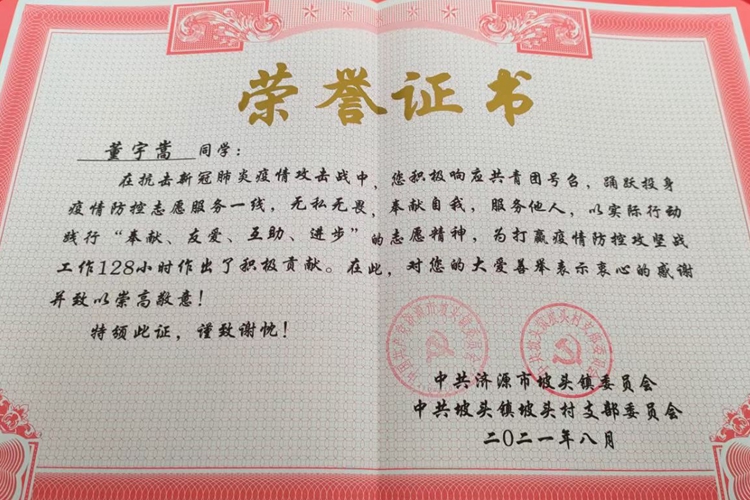 荣誉证书
董宇嵩 同学：
在抗击新冠肺炎疫情攻击战中，您积极响应共青团号召，踊跃投身
疫情防控志愿服务一线，无私无畏，奉献自我，服务他人，以实际行动
践行“奉献、友爱、互助、进步”的志愿精神，为打赢疫情防控攻坚战
工作128小时作出了积极贡献。在此，对您的大爱善举表示衷心的感谢
并致以崇高敬意！
特颁此证，谨致谢忱！
中共济源市坡头镇委员会
中共坡头镇坡头村支部委员会
二〇二一年八月